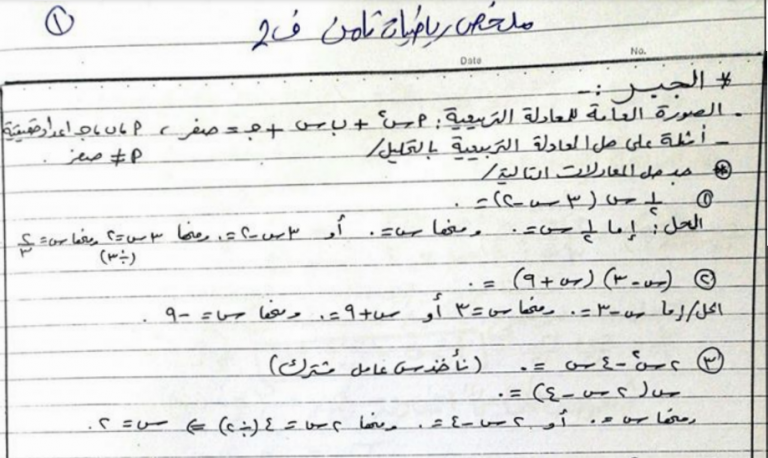 ①
ملخص رياضيات ثامن ف2
Date No.
* الجبر :-
. الصورة العامة للمعادلة التربيعية : ٩س٢ + ب س + جـ = صفر ، ٩ ، ب ، جـ اعداد حقيقية
٩ ≠ صفر .
- أمثلة على حل المعادلة التربيعية بالتحليل /
* جد حل المعادلات التالية /
① ١/٢ س (٣ س - ٢) = ٠
الحل : إما ١/٢ س = ٠ ومنها س = ٠ أو ٣ س - ٢ = ٠ ومنها ٣ س = ٢ ومنها س = ٢/٣
(÷٣)
② (س - ٣) (س + ٩) = ٠
الحل / إما س - ٣ = ٠ ومنها س = ٣ أو س + ٩ = ٠ ومنها س = - ٩ .
③ ٢ س٢ - ٤ س = ٠ (نأخذ س عامل مشترك)
س (٢ س - ٤) = ٠
ومنها س = ٠ أو ٢ س - ٤ = ٠ ومنها ٢ س = ٤ (÷٢) ⇐ س = ٢ .